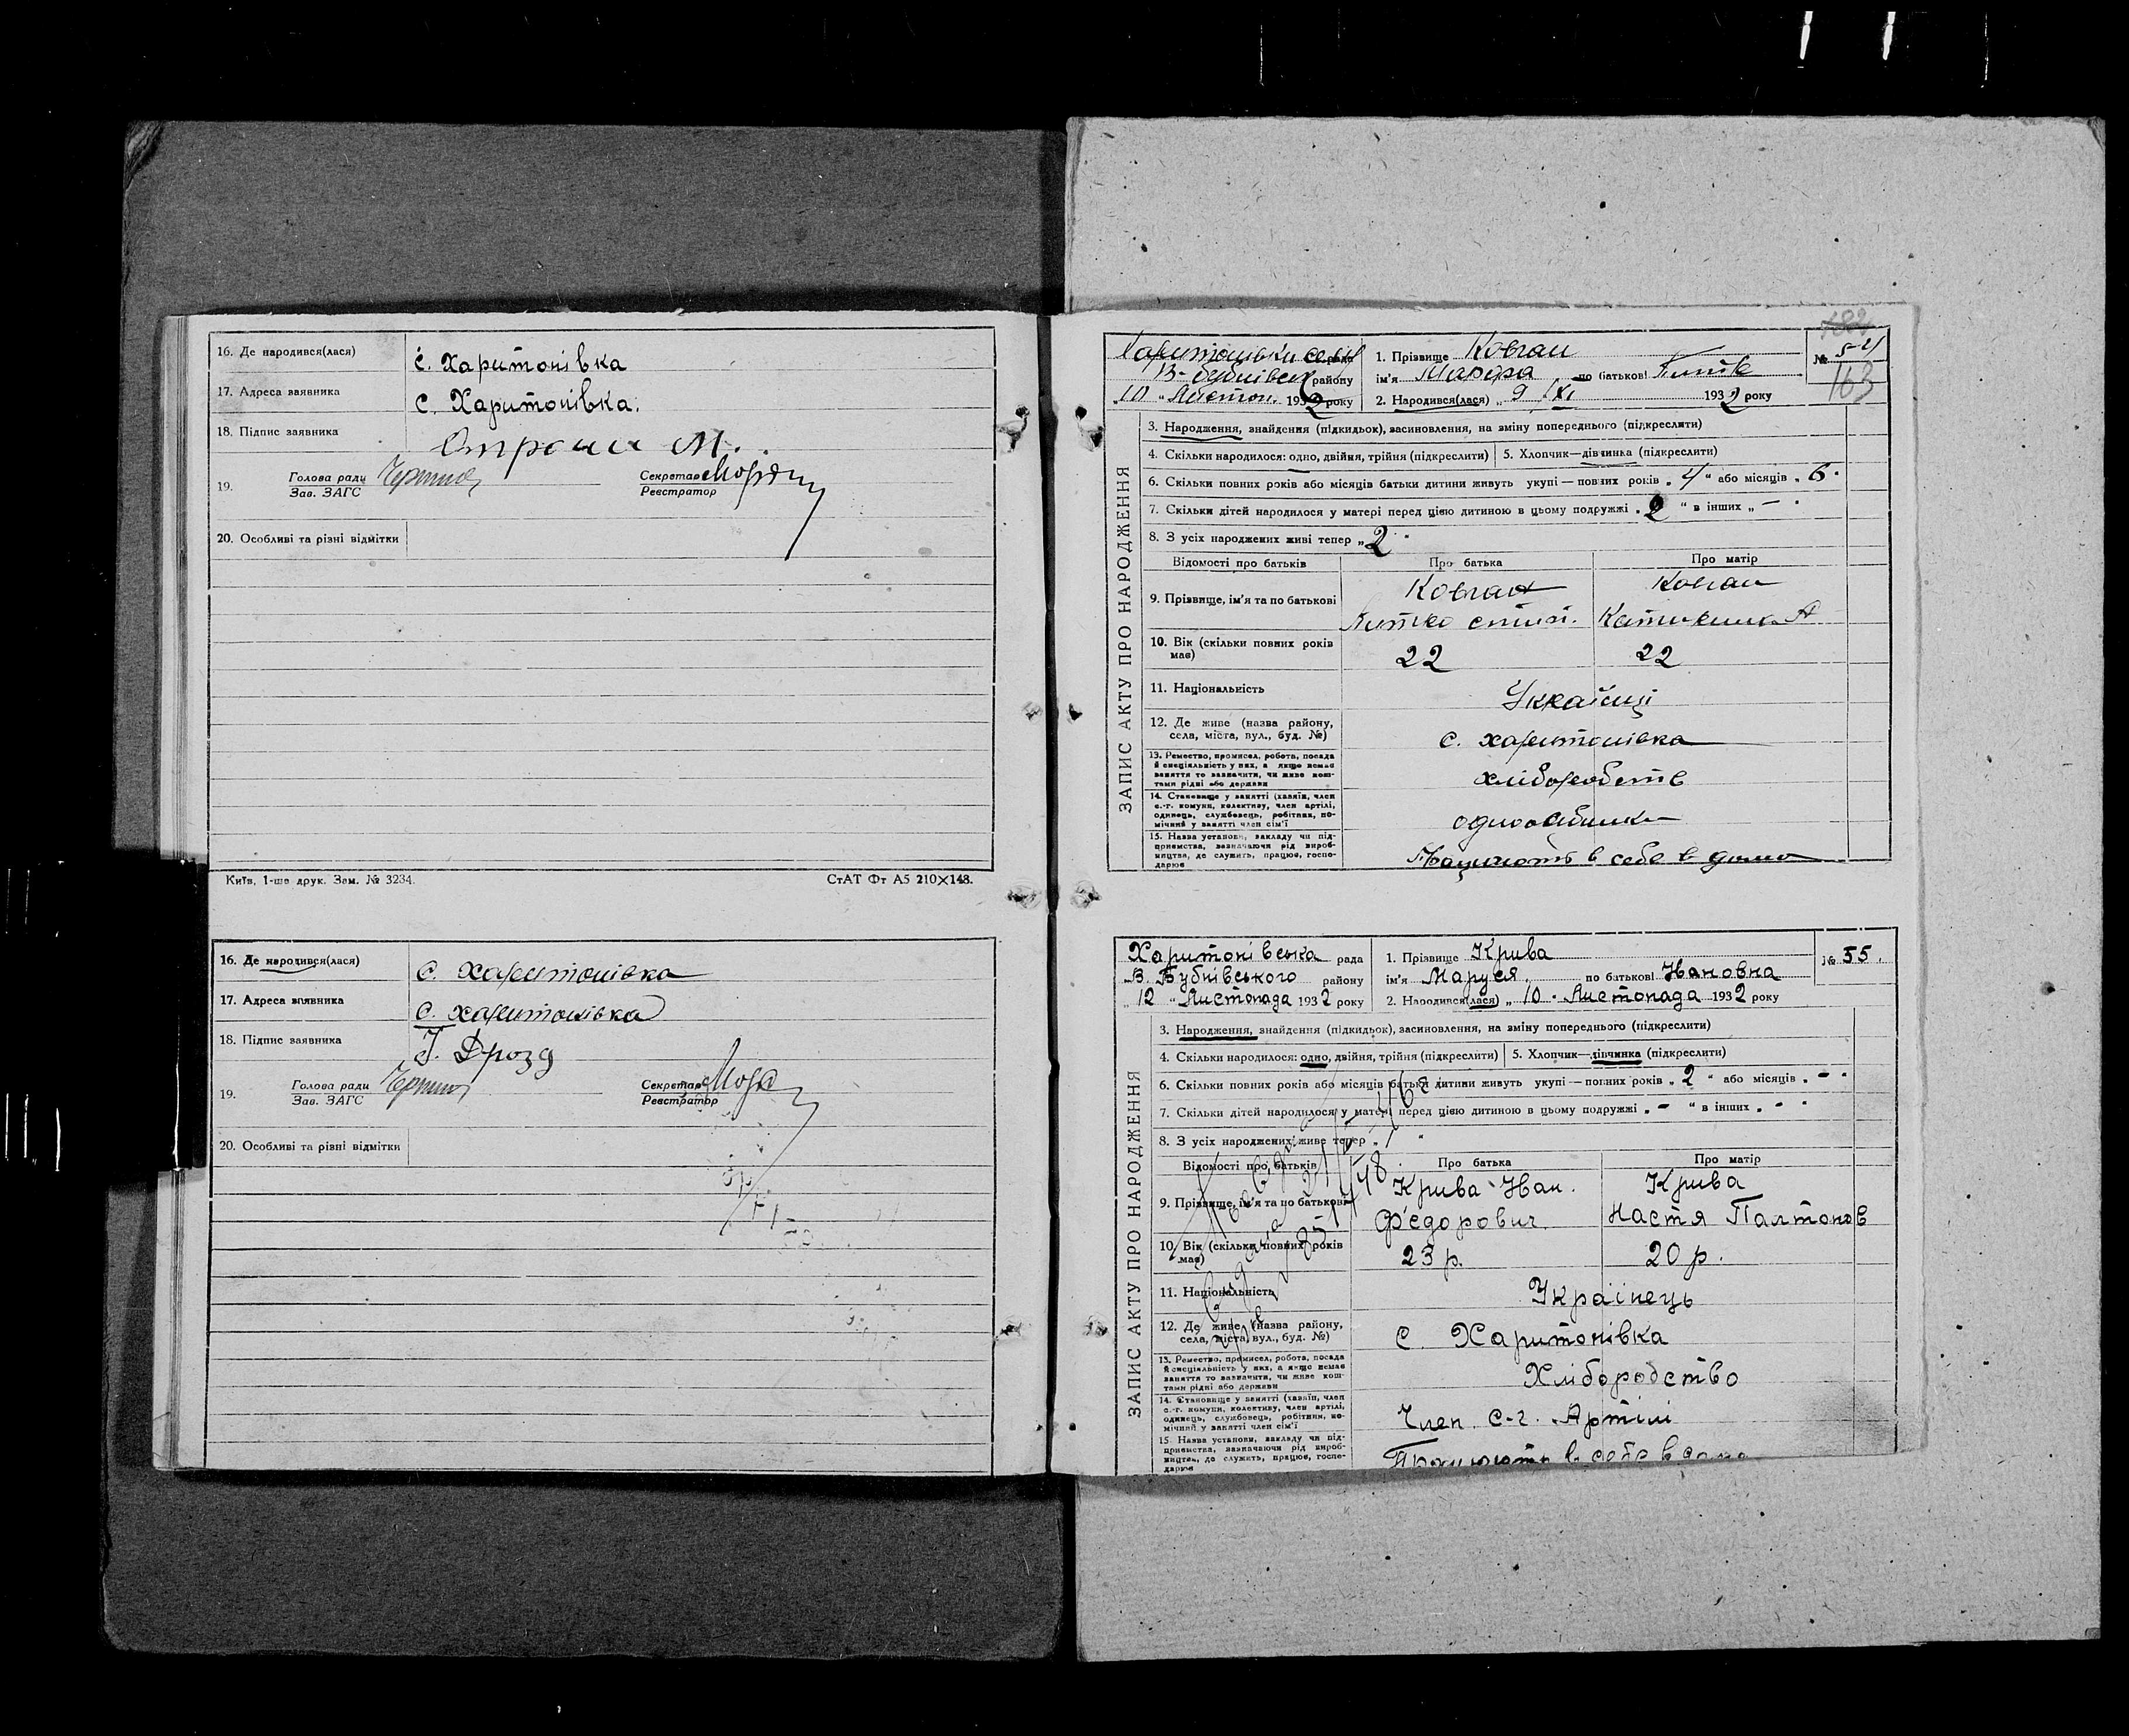 16. Де народився(лася) с. Харитонівка
17. Адреса заявника с. Харитонівка.
18. Підпис заявника М.
19. Голова ради Секретар
Зав. ЗАГС Реєстратор
20. Особливі та різні відмітки
Київ, 1-ша друк. Зам. № 3234. СтАТ Фт А5 210×148.
16. Де народився(лася) с. Харитонівка
17. Адреса заявника с. Харитонівка
18. Підпис заявника Дрозд
19. Голова ради Секретар
Зав. ЗАГС Реєстратор
20. Особливі та різні відмітки
рада 1. Прізвище Ковган № 54
району ім'я по батькові 163
„10 “ Листоп. 1932 року 2. Народився(лася) „ 9 /XI 1932 року
ЗАПИС АКТУ ПРО НАРОДЖЕННЯ
3. Народження, знайдення (підкидьок), засиновлення, на зміну попереднього (підкреслити)
4. Скільки народилося: одно, двійня, трійня (підкреслити) 5. Хлопчик—дівчинка (підкреслити)
6. Скільки повних років або місяців батьки дитини живуть укупі — повних років „ 4 “ або місяців „ 6 “
7. Скільки дітей народилося у матері перед цією дитиною в цьому подружжі „ 2 “ в інших „ — “
8. З усіх народжених живі тепер „ 2 “
Відомості про батьків Про батька Про матір
9. Прізвище, ім'я та по батькові Ковган Ковган
10. Вік (скільки повних років має) 22 22
11. Національність Українці
12. Де живе (назва району, села, міста, вул., буд. №) с. Харитонівка
13. Ремество, промисел, робота, посада й спеціяльність у них, а якщо немає заняття то зазначити, чи живе коштами рідні або держави хліборобств
14. Становище у занятті (хазяїн, член с.-г. комуни, колективу, член артілі, одинець, службовець, робітник, помічний у занятті член сім'ї
15. Назва установи, закладу чи підприємства, зазначаючи рід виробництва, де служить, працює, господарює Працюють в себе в дома
Харитонівська рада 1. Прізвище Крива № 55.
В. Бубнівського району ім'я Маруся, по батькові Івановна
„ 12 “ Листопада 1932 року 2. Народився(лася) „ 10 “ Листопада 1932 року
ЗАПИС АКТУ ПРО НАРОДЖЕННЯ
3. Народження, знайдення (підкидьок), засиновлення, на зміну попереднього (підкреслити)
4. Скільки народилося: одно, двійня, трійня (підкреслити) 5. Хлопчик—дівчинка (підкреслити)
6. Скільки повних років або місяців батьки дитини живуть укупі — повних років „ 2 “ або місяців „ – “
7. Скільки дітей народилося у матері перед цією дитиною в цьому подружжі „ – “ в інших „ – “
8. З усіх народжених живе тепер „ 1 “
Відомості про батьків Про батька Про матір
9. Прізвище, ім'я та по батькові Крива Іван. Крива
Федорович. Настя Палтонов
10. Вік (скільки повних років має) 23 р. 20 р.
11. Національність Українець
12. Де живе (назва району, села, міста, вул., буд. №) с. Харитонівка
13. Ремество, промисел, робота, посада й спеціяльність у них, а якщо немає заняття то зазначити, чи живе коштами рідні або держави Хлібородство
14. Становище у занятті (хазяїн, член с.-г. комуни, колективу, член артілі, одинець, службовець, робітник, помічний у занятті член сім'ї Член с-г. Артілі
15. Назва установи, закладу чи підприємства, зазначаючи рід виробництва, де служить, працює, господарює Працюють в себе в дома